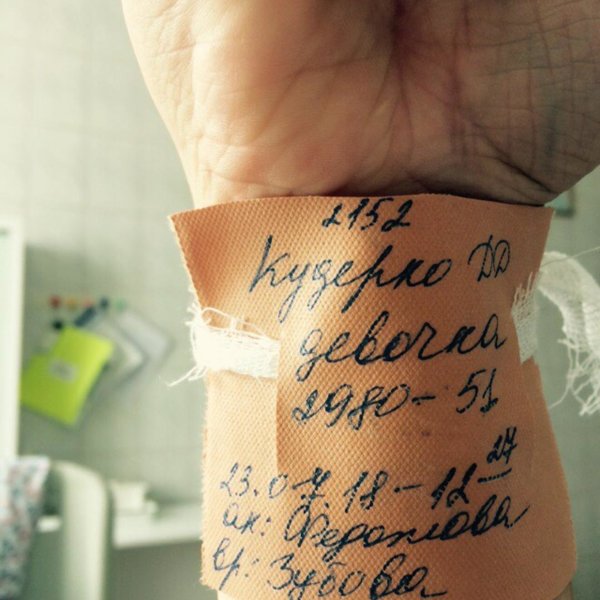 2152
Кудерко ДД
девочка
2980-51
23.07.18-12-27
ак:
вр: Зубова